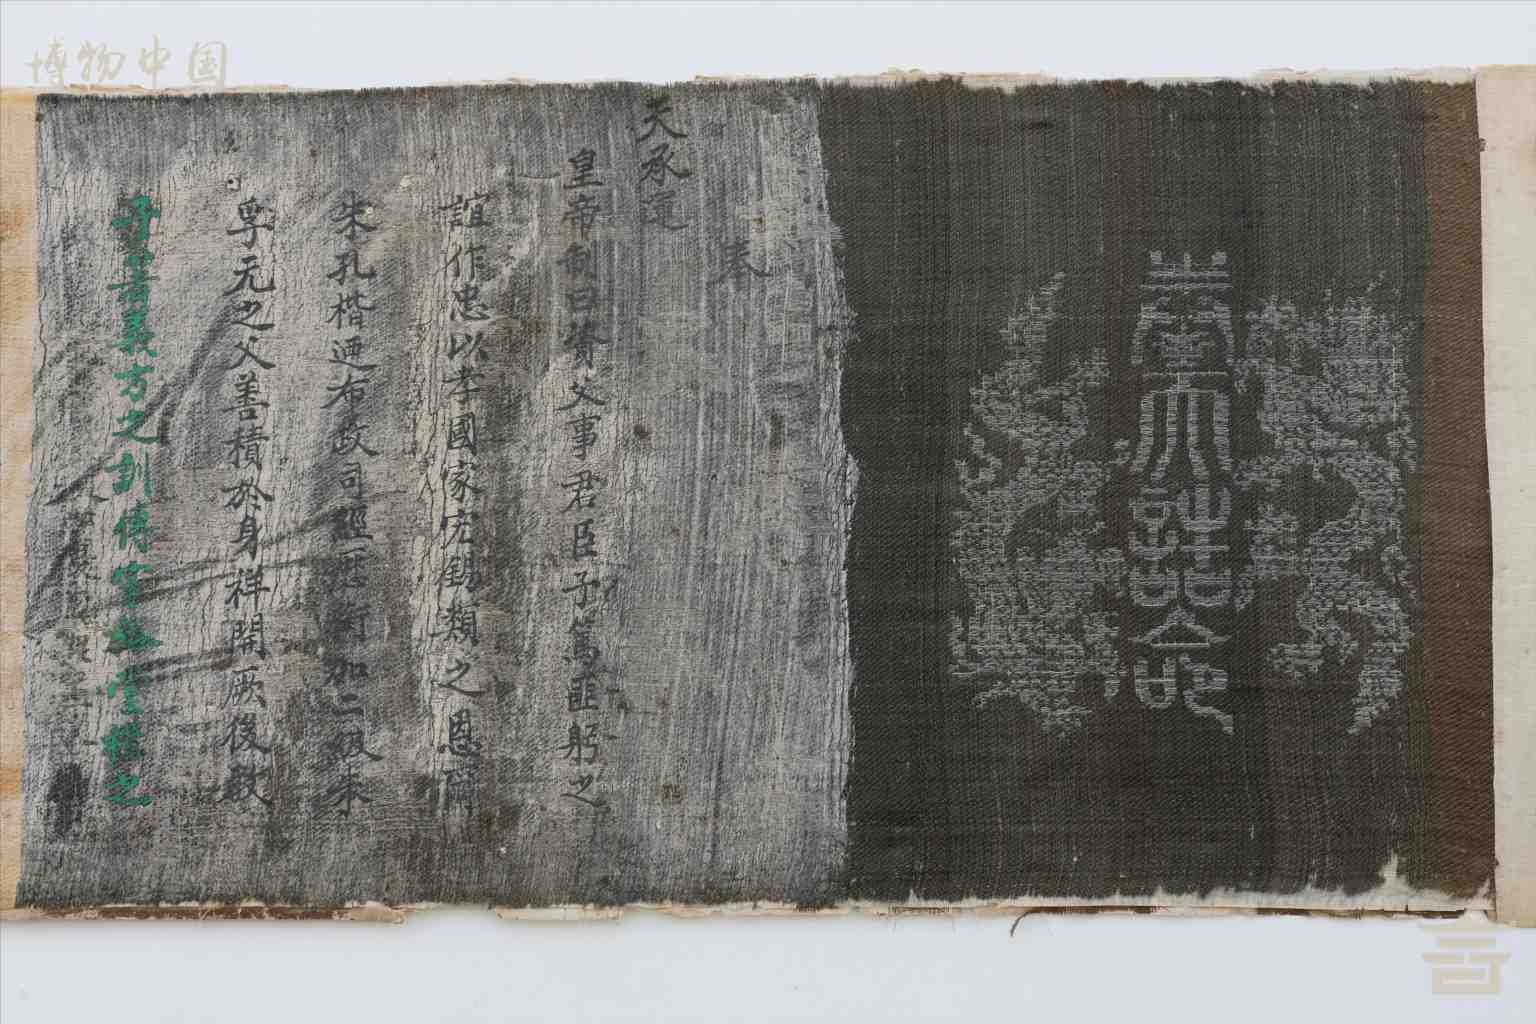 博物中国
奉天誥命
奉
天承運
皇帝制曰資父事君臣子篤匪躬之
誼作忠以孝國家宏錫類之恩爾
朱孔楷迺布政司經歷銜加二級朱
孚元之父善積於身祥開厥後教
子著義方之訓傳家裕堂構之